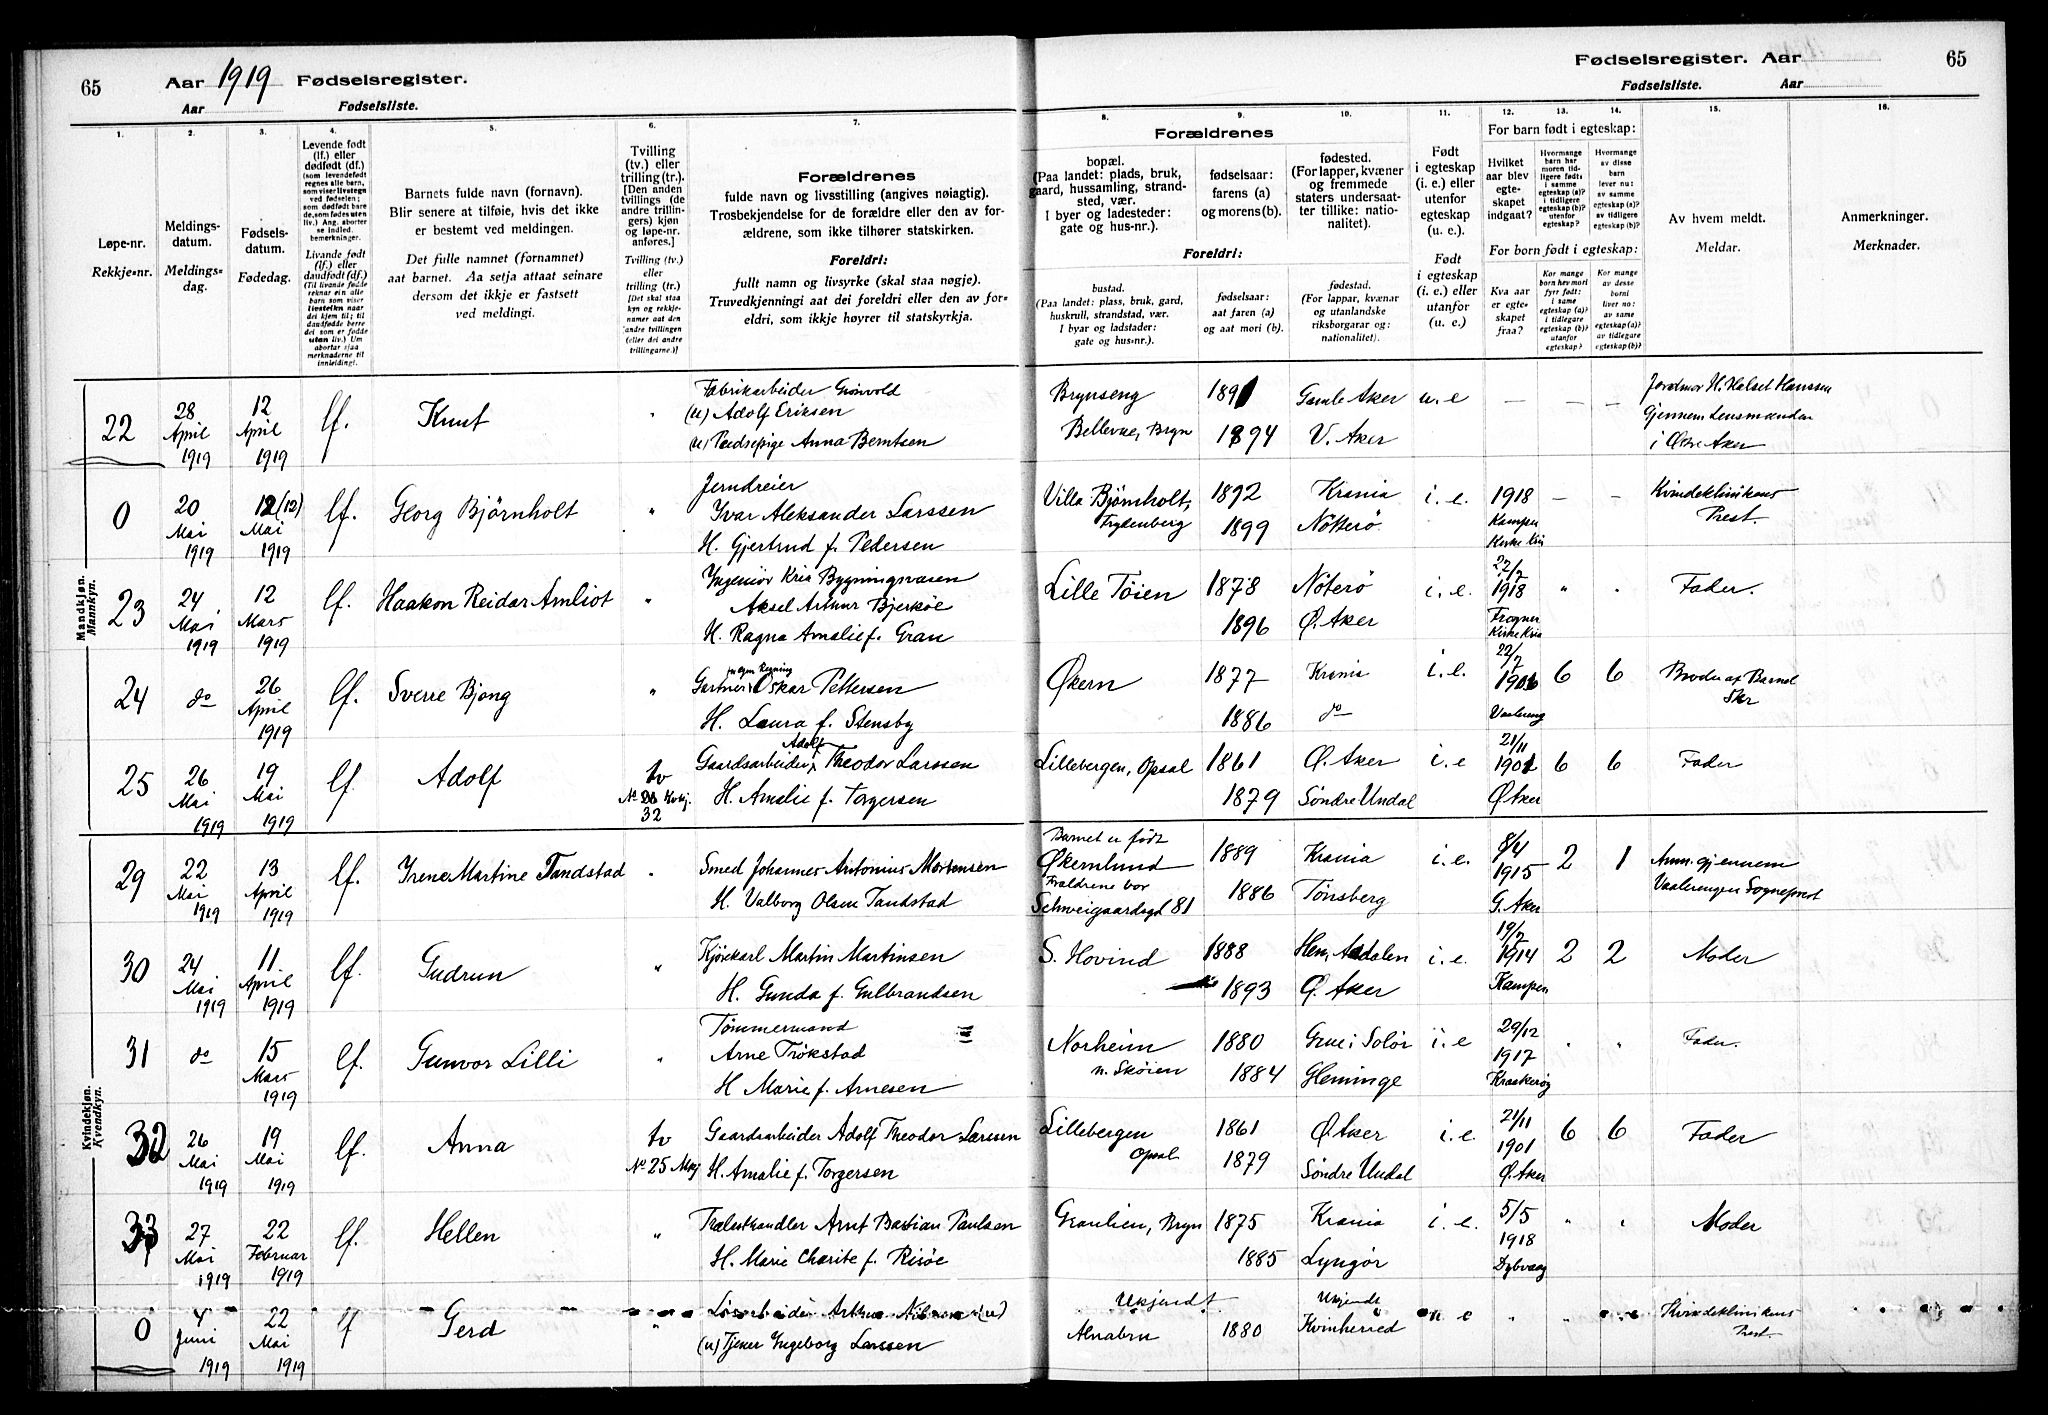 65 Aar 1919 Fødselsregister.
Aar Fødselsliste.
Fødselsregister. Aar 65
Fødselsliste. Aar
1. 2. 3. 4. 5. 6. 7. 8. 9. 10. 11. 12. 13. 14. 15. 16.
Løpe-nr.
Rekkje-nr.
Meldings-
datum.
Meldings-
dag.
Fødsels-
datum.
Fødedag.
Levende født
(lf.) eller
dødfødt (df.)
(som levendefødt
regnes alle barn,
som viser livstegn
ved fødselen;
som dødfødt bare
de, som fødes uten
liv.) Ang. aborter
se indled.
bemerkninger.
Livande født
(lf.) eller
daudfødt (df.)
(Til livande fødde
reknar ein alle
born som viser
livsteikn naar
dei kjem til; til
daudfødde berre
dei som er fødde
utan liv.) Um
abortar sjaa
merknaderne til
innleiding!.
Barnets fulde navn (fornavn).
Blir senere at tilføie, hvis det ikke
er bestemt ved meldingen.
Det fulle namnet (fornamnet)
aat barnet. Aa setja attaat seinare
dersom det ikkje er fastsett
ved meldingi.
Tvilling
(tv.) eller
trilling (tr.).
[Den anden
tvillings (de
andre trillin-
gers) kjøn
og løpe-nr.
anføres.]
Tvilling (tv.)
eller
trilling (tr.)
[Det skal staa
kyn og rekkje-
numer aat den
andre tvillingen
(eller dei andre
trillingarne.)]
Forældrenes
fulde navn og livsstilling (angives nøiagtig).
Trosbekjendelse for de forældre eller den av for-
ældrene, som ikke tilhører statskirken.
Foreldri:
fullt namn og livsyrke (skal staa nøgje).
Truvedkjenningi aat dei foreldri eller den av for-
eldri, som ikkje høyrer til statskyrkja.
Forældrenes
bopæl.
(Paa landet: plads, bruk,
gaard, hussamling, strand-
sted, vær.
I byer og ladesteder:
gate og hus-nr.).
fødselsaar:
farens (a)
og morens (b).
fødested.
(For lapper, kvæner
og fremmede
staters undersaat-
ter tillike: natio-
nalitet).
Foreldri:
bustad.
(Paa landet: plass, bruk, gard,
huskrull, strandstad, vær.
I byar og ladstader:
gate og hus-nr.).
fødselsaar:
aat faren (a)
og aat mori (b).
fødestad.
(For lappar, kvænar
og utanlandske
riksborgarar og:
nationalitet).
Født
i egteskap
(i. e.) eller
utenfor
egteskap
(u. e.).
Født
i egteskap
(i. e.) eller
utanfor
(u. e.)
For barn født i egteskap:
Hvilket
aar blev
egte-
skapet
indgaat?
Hvormange
barn har
moren tid-
ligere født:
i samme
egteskap (a)?
i tidligere
egteskap (b)?
utenfor
egteskap?
Hvormange
av disse
barn
lever nu:
av samme
egteskap (a)?
av tidligere
egteskap (b)?
For born født i egteskap:
Kva aar
er egte-
skapet
fraa?
Kor mange
born hev mori
fyrr født:
i same
egteskap (a)?
i tidlegare
egteskap (b)?
utanfor
egteskap?
Kor mange
av desse
borni
liver no:
av same
egteskap (a)?
av tidlegare
egteskap (b)?
Av hvem meldt.
Meldar.
Anmerkninger.
Merknader.
Mandkjøn.
Mannkyn.
22 28 April 1919 12 April 1919 lf. Knut " Fabrikarbeider Grönvold
(u) Adolf Eriksen
(u) Pudsepige Anna Berntsen
Brynseng 1891 Gamle Aker u. e — — — Jordmor H. Halset Hanssen
Bellevue, Bryn 1894 V. Aker Gjennem Lensmanden
i Østre Aker
0 20 Mai 1919 12 (12) Mai 1919 lf. Georg Bjørnholt " Jerndreier
Ivar Aleksander Larssen
H. Gjertrud f. Pedersen
Villa Bjørnholt, 1892 Krania i. e. 1918 — — Kvindeklinikens
Frydenberg 1899 Nötterö Kampen Kirke Kria Prest.
23 24 Mai 1919 12 Mars 1919 lf. Haakon Reidar Amliot " Ingeniör Kria Bygningsvæsen
Aksel Arthur Bjerköe
H. Ragna Amalie f. Gran
Lille Töien 1878 Nöterö i. e. 22/2 1918 " " Fader.
1896 Ø. Aker Frogner Kirke Kria
24 do 26 April 1919 lf. Sverre Bjong " Gartner for egen Regning Oskar Pettersen
H. Laura f. Stensby
Økern 1877 Krania i. e. 22/7 6 6 Broder af Barnet
1886 do Vaalereng
25 26 Mai 1919 19 Mai 1919 lf. Adolf tv No Kvkj. 32
Gaardsarbeider Adolf Theodor Larssen
H. Amalie f. Torgersen
Lillebergen, Opsal 1861 Ø. Aker i. e 21/11 1901 6 6 Fader
1879 Söndre Undal Ø Aker
Kvindekjøn.
Kvendkyn.
29 22 Mai 1919 13 April 1919 lf. Irene Martine Tandstad " Smed Johannes Antonius Mortensen
H. Valborg Olsen Tandstad
Barnet er født
Økernlund 1889 Krania i. e. 8/4 1915 2 1 Anm. gjennem
Forældrene bor
Schweigaardsgd 81 1886 Tønsberg G. Aker Vaalerengen Sogneprest
30 24 Mai 1919 11 April 1919 lf. Gudrun " Kjørekarl Martin Martinsen
H. Gunda f. Gulbrandsen
S. Hovind 1888 Hen, Aadalen i. e. 19/2 1914 2 2 Moder
1893 Ø. Aker Kampen
31 do 15 Mars 1919 lf. Gunvor Lilli " Tømmermand
Arne Trökstad
H Marie f. Arnesen
Norheim 1880 Grue i Solør i. e 29/12 1917 " " Fader.
n. Skøien 1884 Gleminge Kraakerøg
32 26 Mai 1919 19 Mai 1919 lf. Anna tv No 25 Mkj
Gaardsarbeider Adolf Theodor Larssen
H. Amalie f. Torgersen
Lillebergen 1861 Ø. Aker i. e. 21/11 1901 6 6 Fader
Opsal 1879 Söndre Undal Ø. Aker
33 27 Mai 1919 22 Februar 1919 lf. Hellen " Trælasthandler Arnt Bastian Paulsen
H. Marie Charite f. Risöe
Granlien, Bryn 1875 Krania i. e. 5/5 1918 " " Moder
1885 Lyngör Dybvaag
0 4 Juni 1919 22 Mai 1919 lf Gerd " Løsarbeider Arthur (u)
(u) Tjener Ingeborg Larssen
Ukjendt Ukjendt u. e " " Kvindeklinikens
Alnabru 1880 Kvinherred Prest.